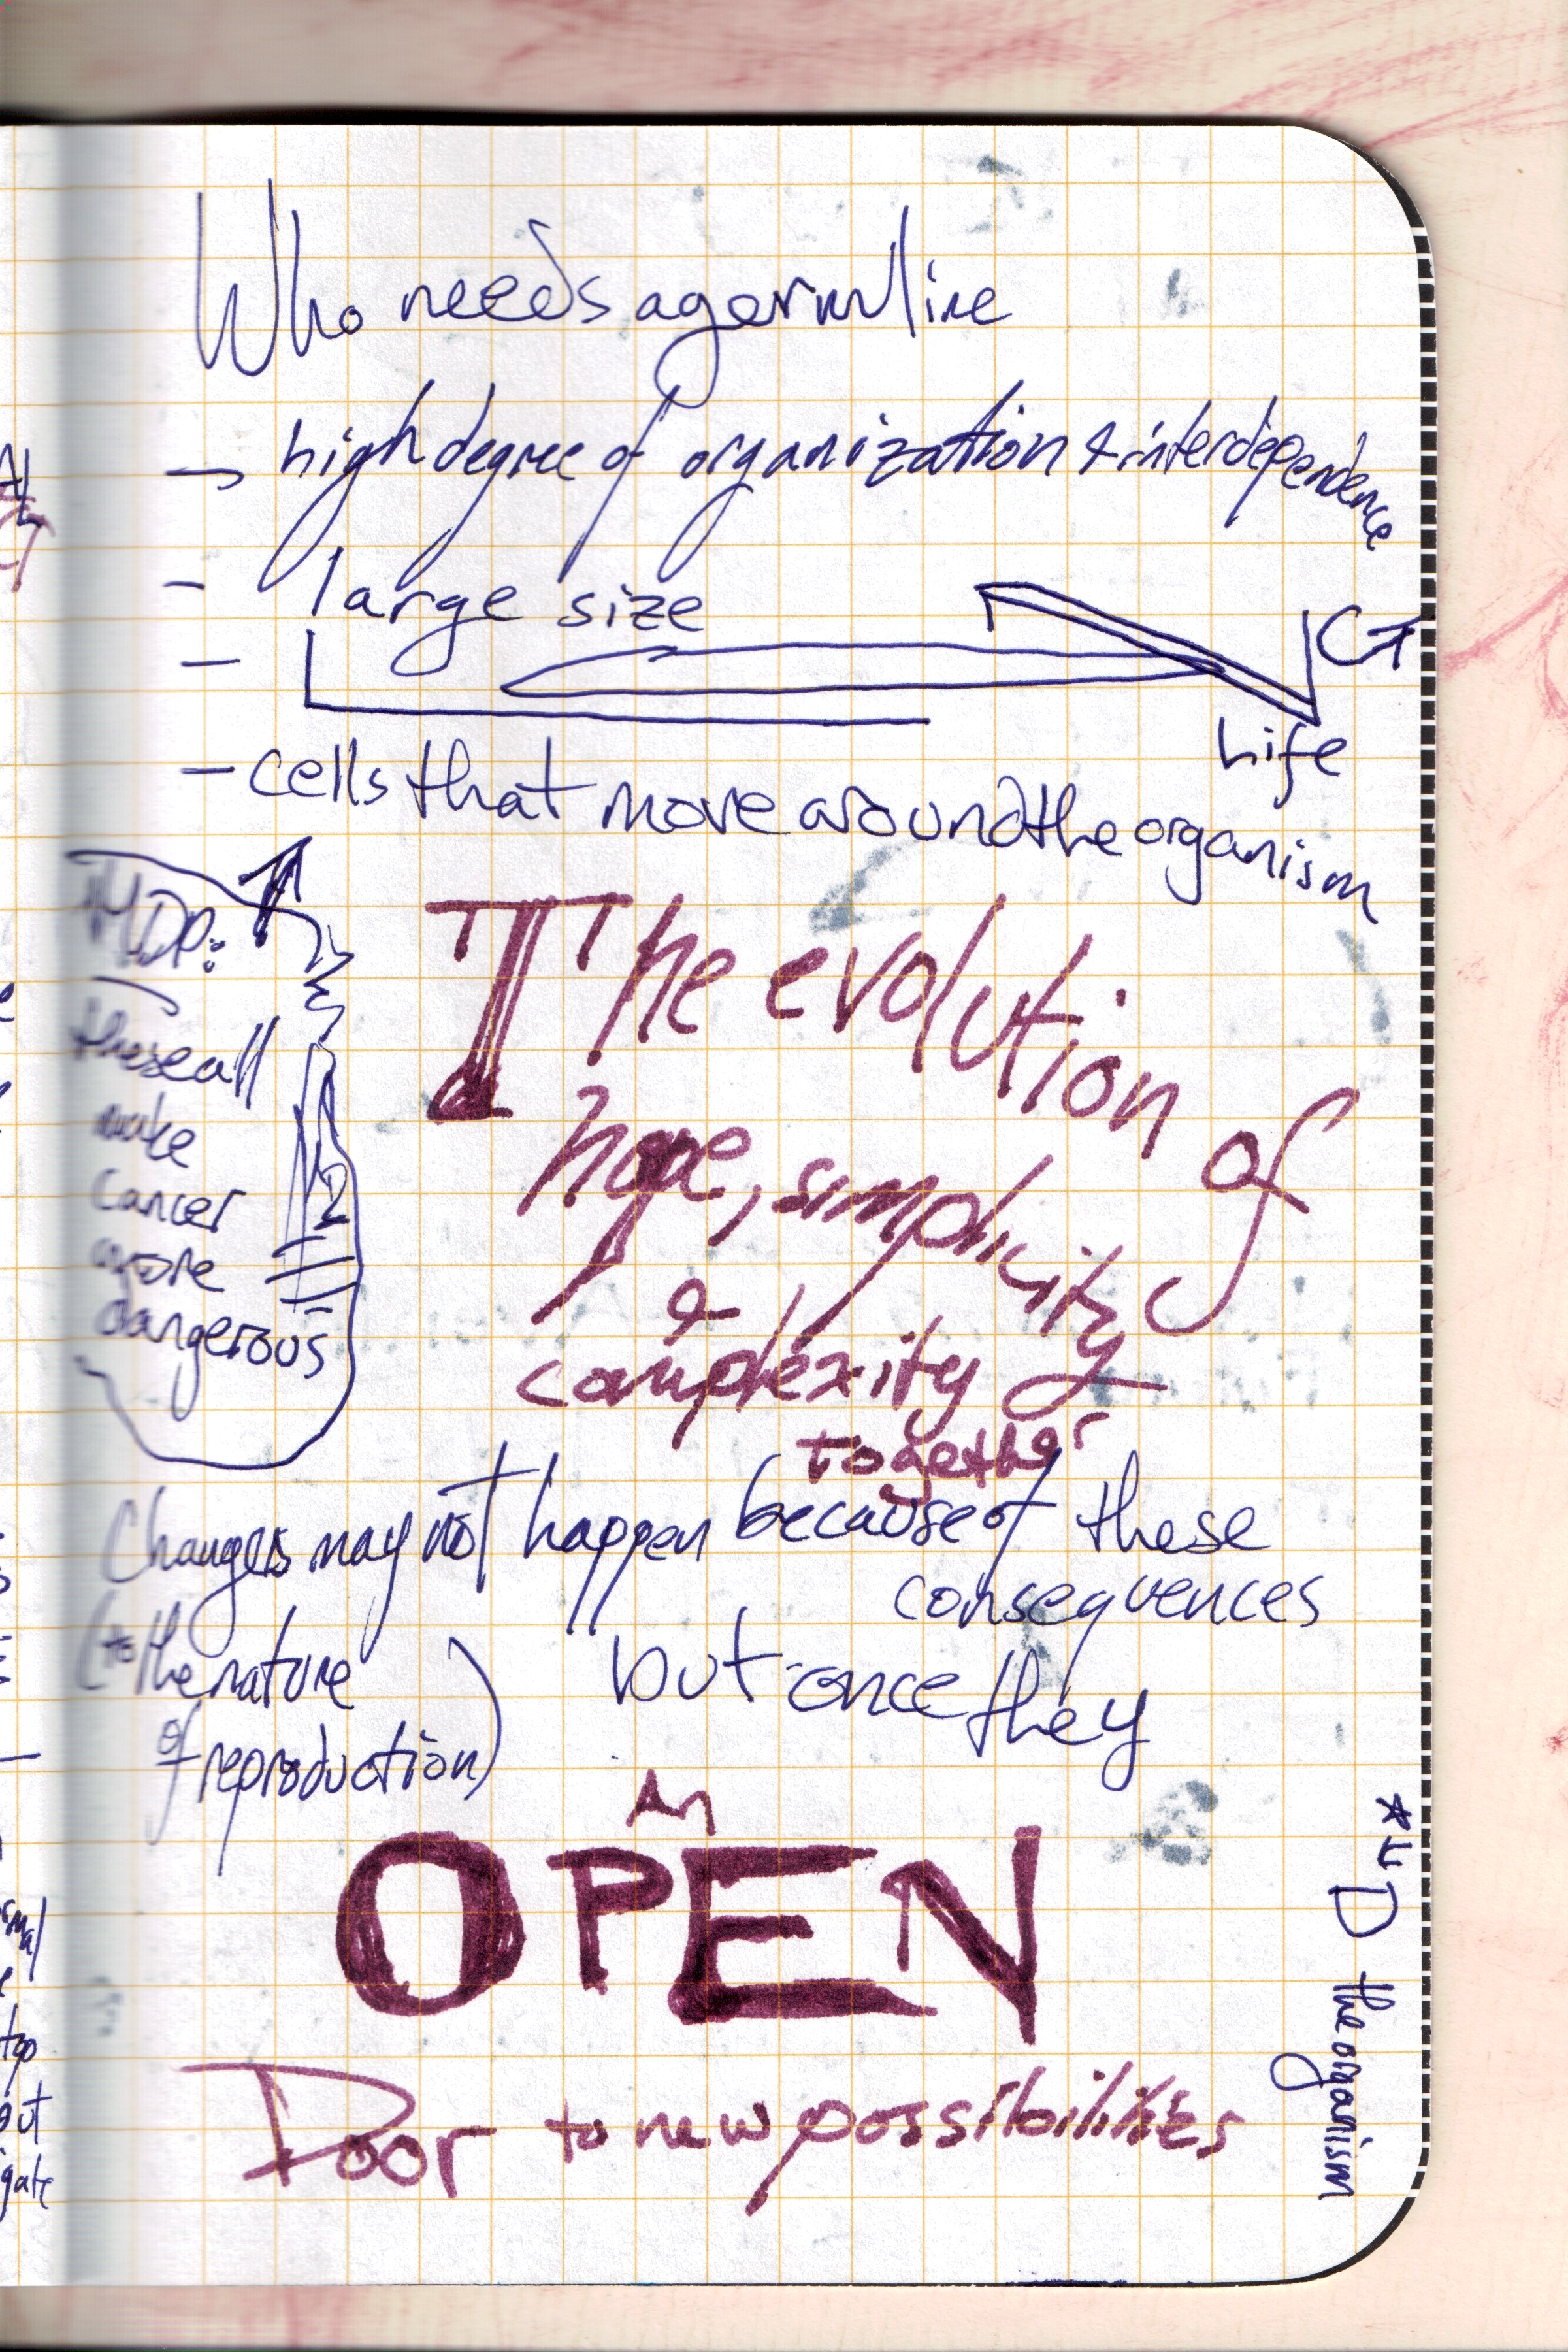 Who needs a germ line
- high degree of organization & interdependence
- large size
-
Life
- cells that move around the organism
MDP:
these all
make
cancer
more
dangerous
The evolution of
hope, simplicity
&
complexity
together
Changes may not happen because of these
consequences
(to the nature
of reproduction)
but once they
OPEN
Door to new possibilities
the organism